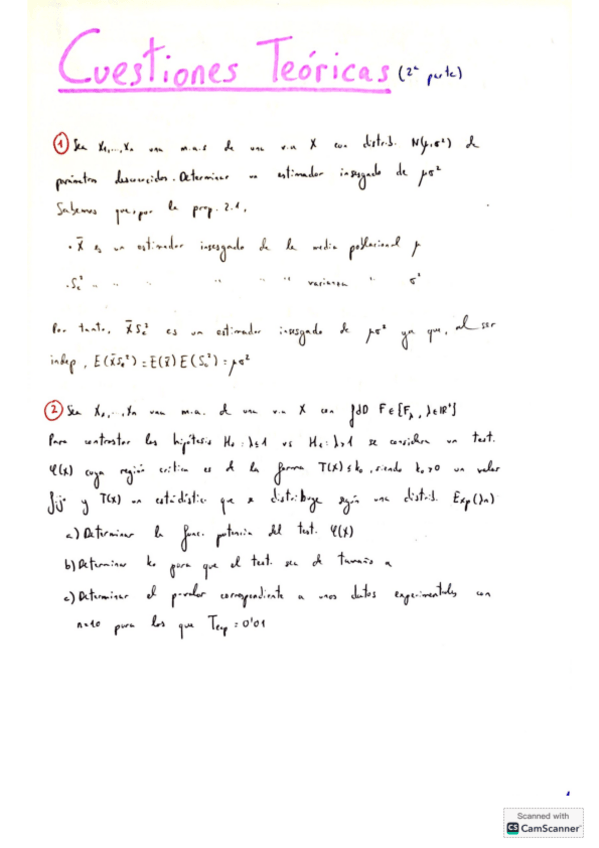 Cuestiones Teóricas (2ª parte)
① Sea X₁,...,Xₙ una m.a.s de una v.a X con distrib. N(μ,σ²) de
parámetros desconocidos. Determinar un estimador insesgado de μσ²
Sabemos que, por la prop. 2.1,
· X̄ es un estimador insesgado de la media poblacional μ
· Sc² " " " " " " varianza " σ²
Por tanto, X̄Sc² es un estimador insesgado de μσ² ya que, al ser
indep, E(X̄Sc²) = E(X̄)E(Sc²) = μσ²
② Sea X₁,...,Xₙ una m.a. de una v.a X con fdD F∈{Fλ, λ∈IR⁺}
Para contrastar las hipótesis H₀: λ≤1 vs H₁: λ>1 se considera un test.
φ(X) cuya región crítica es de la forma T(X)≤k₀, siendo k₀>0 un valor
fijo y T(X) un estadístico que se distribuye según una distrib. Exp(λn)
a) Determinar la func. potencia del test. φ(X)
b) Determinar k₀ para que el test. sea de tamaño α
c) Determinar el p-valor correspondiente a unos datos experimentales con
n=10 para los que Texp = 0'01
1
Scanned with
CS CamScanner